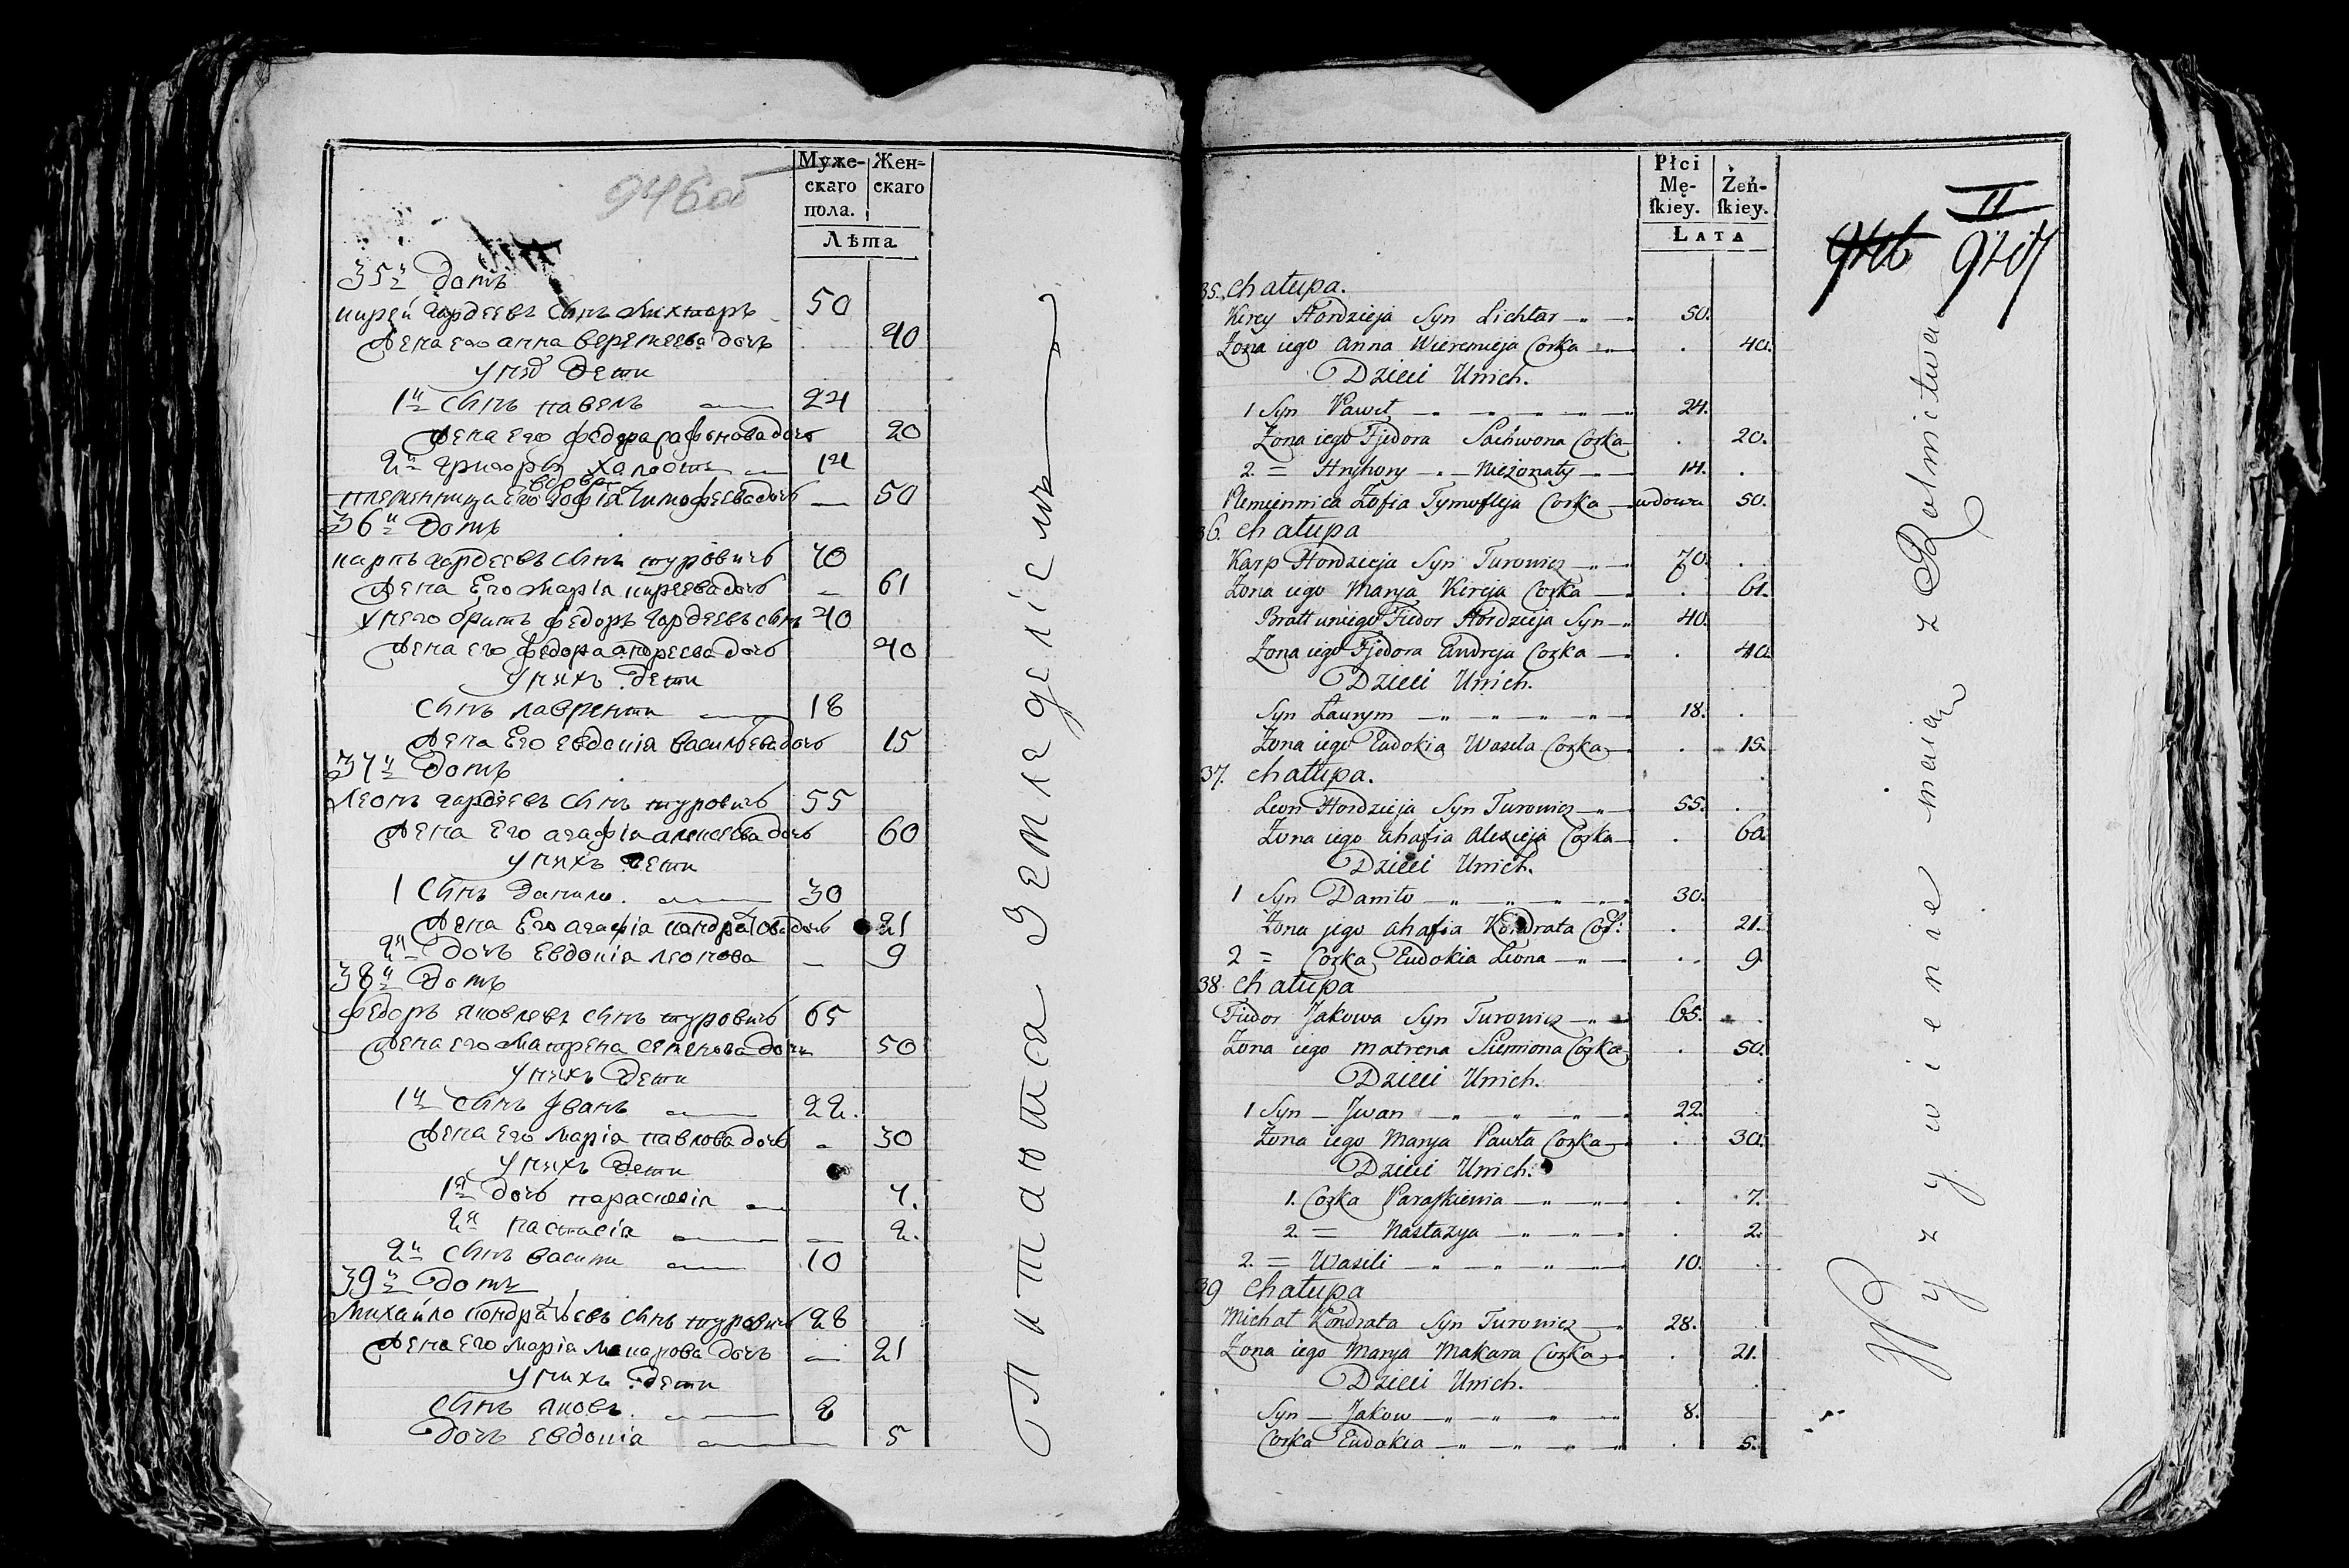 946об
Муже-
скаго
пола.
Жен-
скаго
Лѣта
35й Домъ
кирей гордеевъ сынъ лихтаръ 50
Жена его анна веремеева дочь 40
у них дети
1й сынъ павелъ 24
Жена его федора сафонова дочь 20
2й григорый халостъ 14
вдова
племенница Его Зофія тимофеева дочь — 50
36й Домъ
карпъ гордеевъ сынъ туровичь 70
Жена Его Марія киреева дочь — 61
у него братъ федоръ гордеевъ сынъ 40
Жена его федора андреева дочь 40
у нихъ дети
сынъ лавренти 18
Жена Его евдокія васильева дочь 15
37й Домъ
Леонъ гордеевъ сынъ туровичь 55
Жена Его агафія алексеева дочь 60
у нихъ дети
1 сынъ данило 30
Жена Его агафія кондратова дочь 21
2я дочь евдокія леонова — 9
38й Домъ
федоръ яковлевъ сынъ туровичь 65
Жена его Матрена семенова дочь 50
у нихъ дети
1й сынъ Иванъ 22.
Жена Его Марія павлова дочь — 30
у нихъ дети
1я дочь параскевія 7.
2я настасія — 2.
2й сынъ васили 10
39й Домъ
Михайло кондратьевъ сынъ туровичь 28
Жена Его Марія Макарова дочь — 21
у нихъ дети
сынъ яковъ 8
дочь евдокія 5
Питаютса Земледеліемъ
Płci
Mę-
ſkiey.
Żeń-
ſkiey.
Lata
II
946 947
35. Chałupa.
Kirey Hordzieja Syn Lichtar 50.
Żona iego Anna Wieremieja Corka . 40.
Dzieci Unich.
1 Syn Paweł 24.
Żona iego Fjedora Sachwona Corka . 20.
2. = Hryhory — Nieżonaty 14. .
Plemiennica Zofia Tymofieja Corka — wdowa 50.
36. Chałupa
Karp Hordzieja Syn Turowicz 70. .
Żona iego Marya Kireja Corka . 61.
Bratt uniego Fiedor Hordzieja Syn 40.
Żona iego Fjedora Andreja Corka . 40.
Dzieci Unich.
Syn Ławrym 18. .
Żona iego Eudokia Wasela Corka . 15.
37. Chałupa.
Leon Hordzieja Syn Turowicz 55. .
Żona iego Ahafia Alexieja Corka . 60.
Dzieci Unich.
1 Syn Daniło 30.
Żona jego Ahafia Kondrata Cor: . 21.
2 = Corka Eudokia Leona . 9.
38. Chałupa
Fiedor Jakowa Syn Turowicz 65. .
Żona iego Matrena Siemiona Corka . 50.
Dzieci Unich.
1 Syn — Jwan 22.
Żona iego Marya Pawła Corka . 30.
Dzieci Unich.
1. Corka Paraſkiewia . 7.
2. = Nastazya . 2.
2. = Wasili 10.
39 Chałupa
Michał Kondrata Syn Turowicz 28.
Żona iego Marya Makara Corka . 21.
Dzieci Unich.
Syn — Jakow 8.
Corka Eudokia . 5.
Wyzywienie maią z Rolnictwa